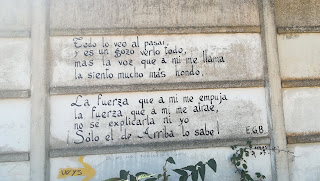 Todo lo veo al pasar,
y es un gozo verlo todo,
mas la voz que a mi me llama
la siento mucho más hondo.
La fuerza que a mi me empuja
la fuerza que a mi me atrae,
no sé explicarla ni yo
¡Sólo el de Arriba lo sabe!
E.G.B.